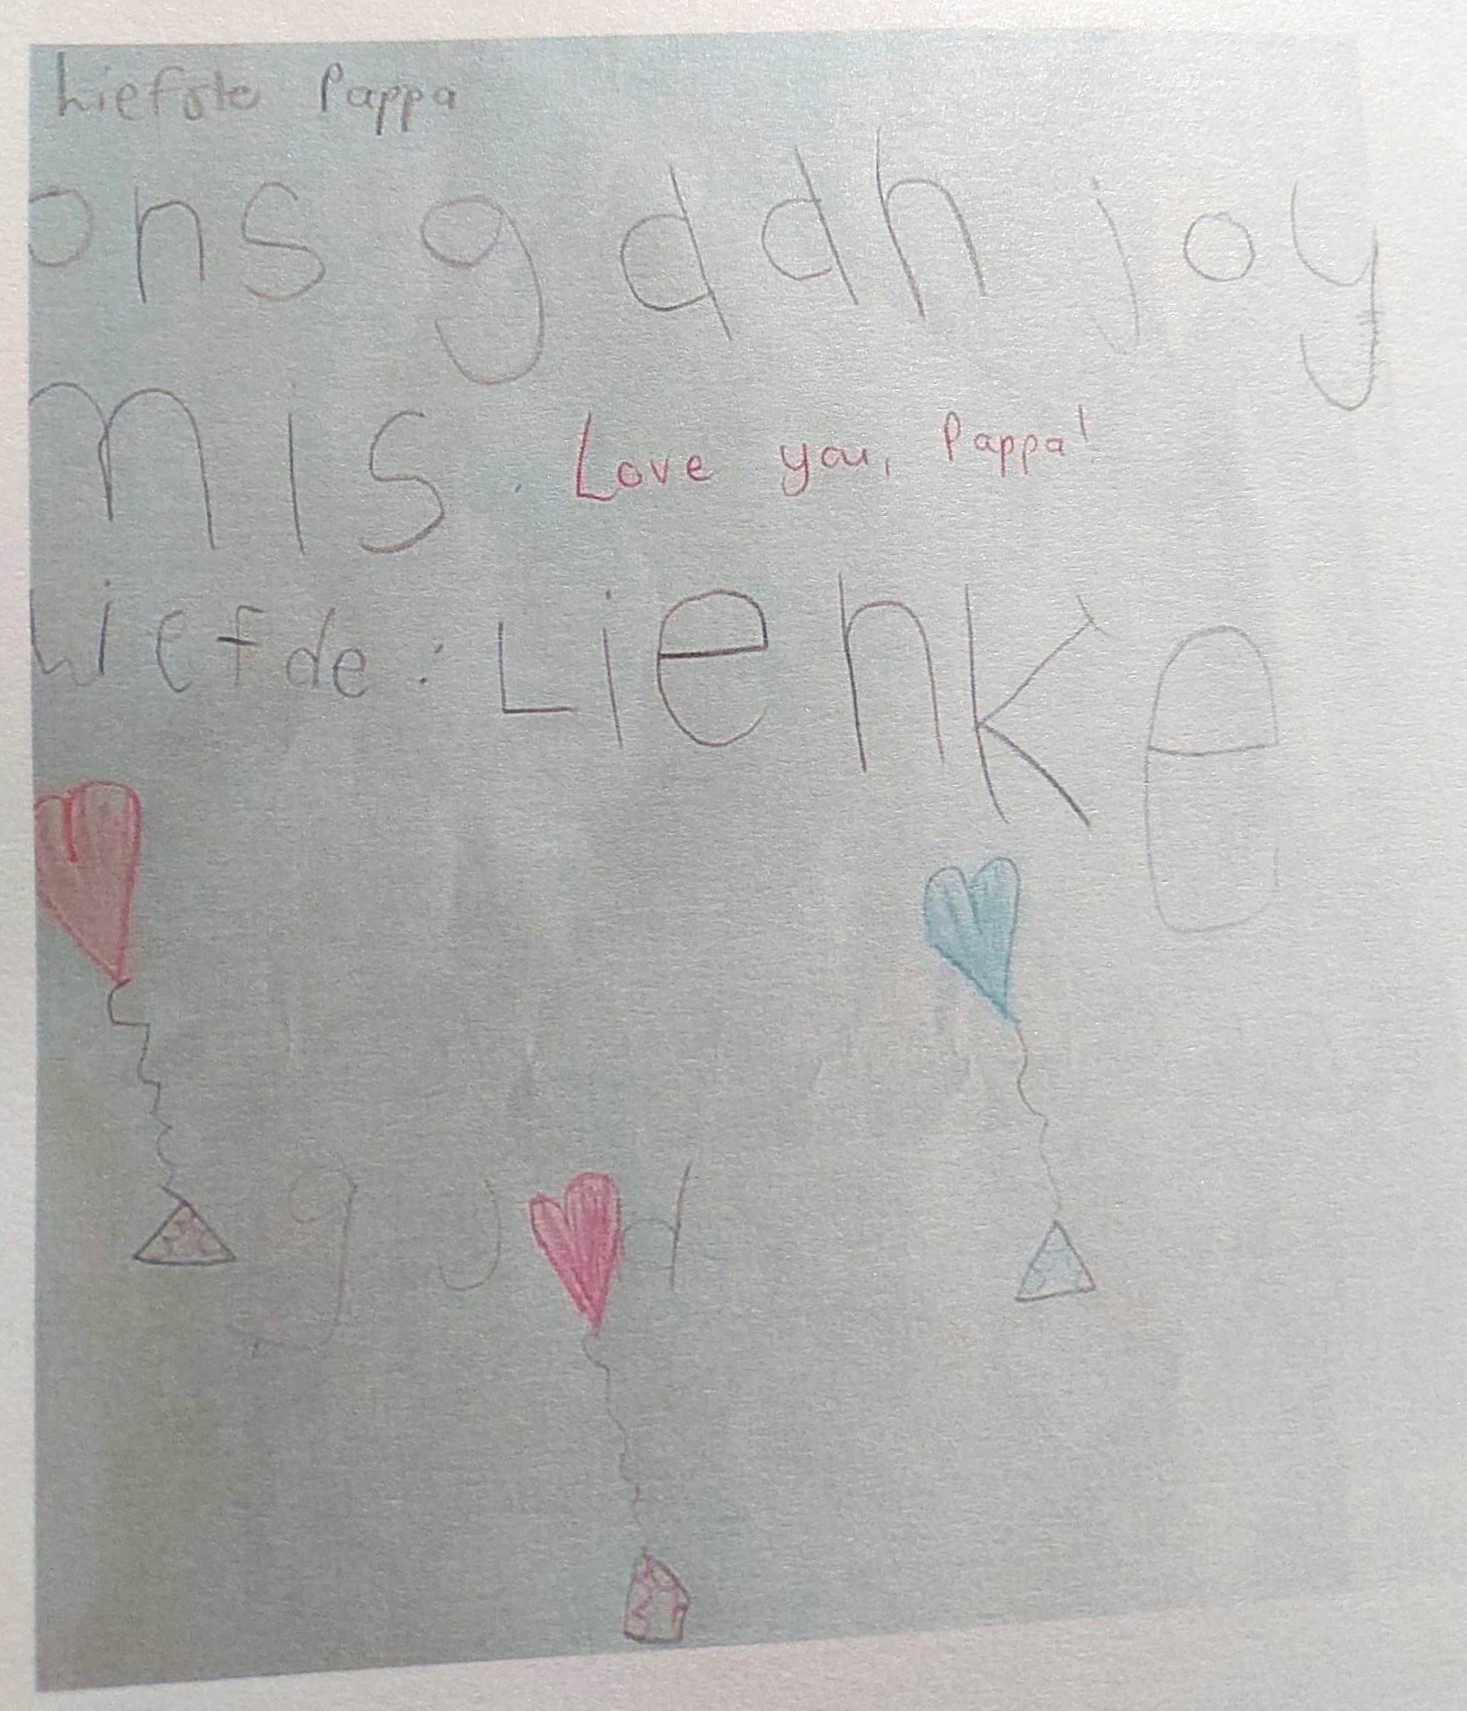 Liefste Pappa
ons gddn joy
mis. Love you, Pappa!
Liefde: Lienke